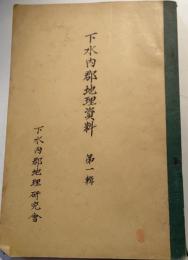 下水内郡地理資料 第一輯
下水内郡地理研究會